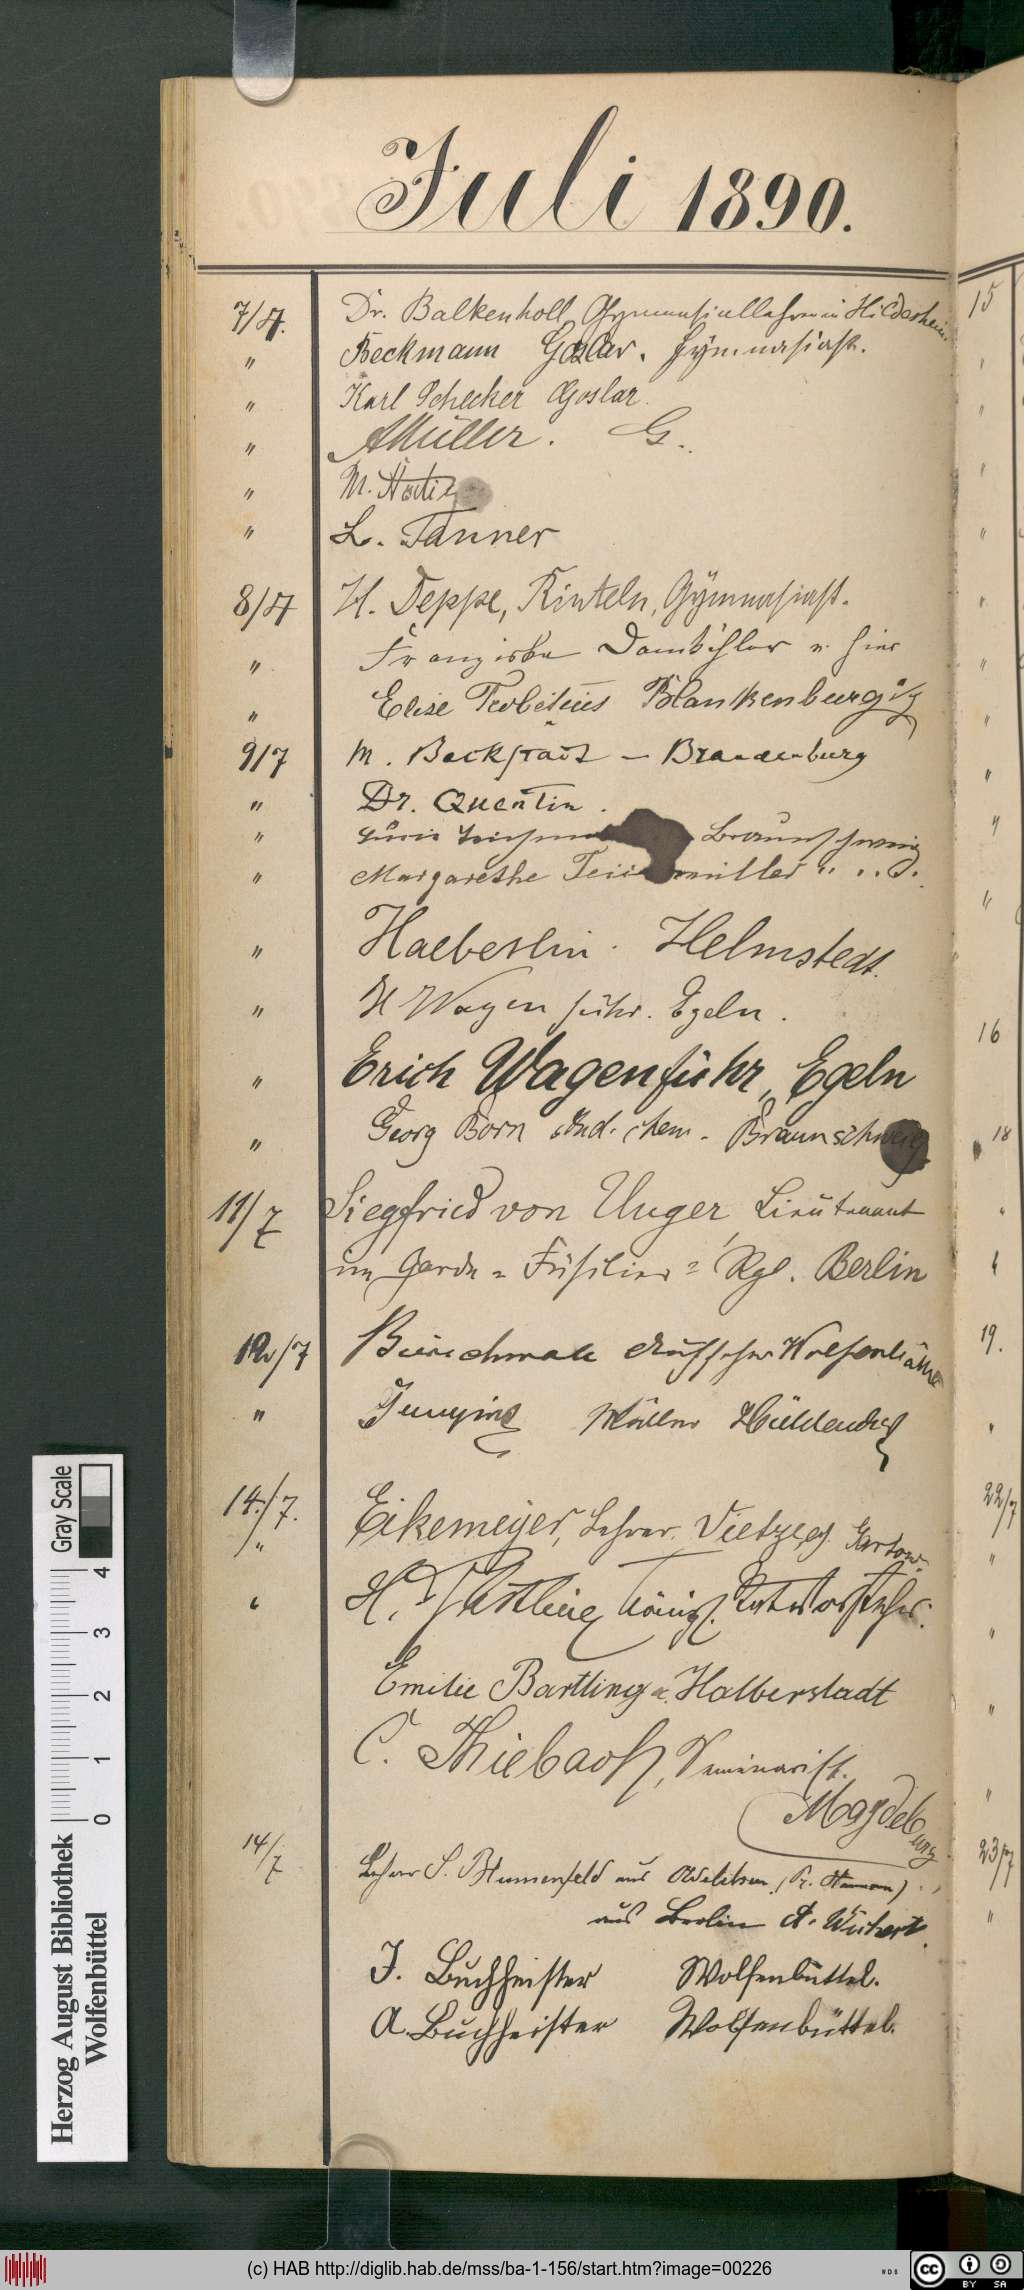 Juli 1890.
7/7. Dr. Balkenholl, Gymnasiallehrer in Hildesheim
" Beckmann Goslar. Gymnasiast.
" Karl Schecker Goslar.
" AMüller. G.
" M.
" L. Tanner
8/7 H. Deppe, Rinteln, Gymnasiast.
" Franziska v. hier
" Elise Blankenburg a/H
9/7 M. Backstadt – Brandenburg
" Dr. Quentin.
" Braunschweig
" Margarethe " . . d.
" Haeberlin. Helmstedt.
" H Wagenführ. Egeln.
" Erich Wagenführ, Egeln
" Georg Born stud. chem. Braunschweig
11/7 Siegfried von Unger, Lieutenant
im Garde = Füsilier = Rgt. Berlin
12/7 Wolfenbüttel
" Müller
14./7. Eikemeyer, Lehrer. Vietze, Gartow.
" H. Königl.
Emilie Bartling a. Halberstadt
C. Seminarist.
Magdeburg
14/7 Lehrer S. Blumenfeld aus
aus Berlin A.
J. Buchheister Wolfenbüttel.
A. Buchheister Wolfenbüttel.
15
16
18
19.
22/7
23/7
Gray Scale
0 1 2 3 4
Herzog August Bibliothek
Wolfenbüttel
(c) HAB http://diglib.hab.de/mss/ba-1-156/start.htm?image=00226
cc BY SA